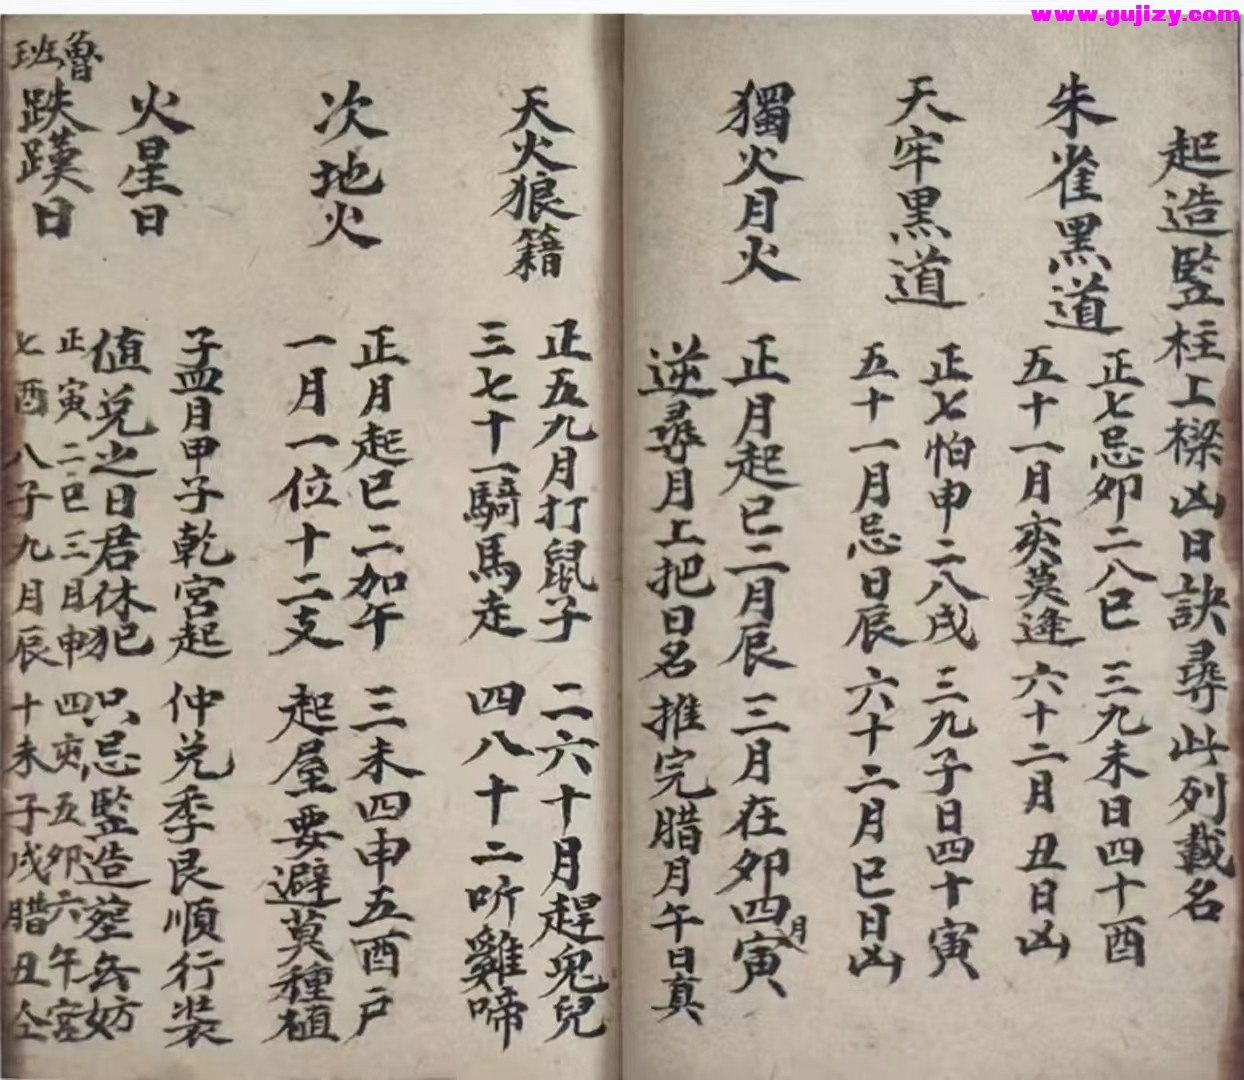 www.gujizy.com
起造監柱上樑凶日訣尋此列載名
朱雀黑道
正七忌卯二八巳 三九未日四十酉
五十一月亥莫逢 六十二月丑日凶
天牢黑道
正七怕申二八戌 三九子日四十寅
五十一月忌日辰 六十二月巳日凶
獨火月火
正月起巳二月辰 三月在卯四月寅
逆尋月上把日名 推完腊月午日真
天火狼籍
正五九月打鼠子 二六十月趕兔兒
三七十一騎馬走 四八十二听雞啼
次地火
正月起巳二加午 三未四申五酉戸
一月一位十二支 起屋要避莫種植
火星日
子孟月甲子乾宮起 仲兑季艮順行裝
值兑之日君休犯 只忌監造葬無妨
魯班跌蹼日
正寅二巳三月申 四亥五卯六午
七酉八子九月辰 十未子戌腊丑